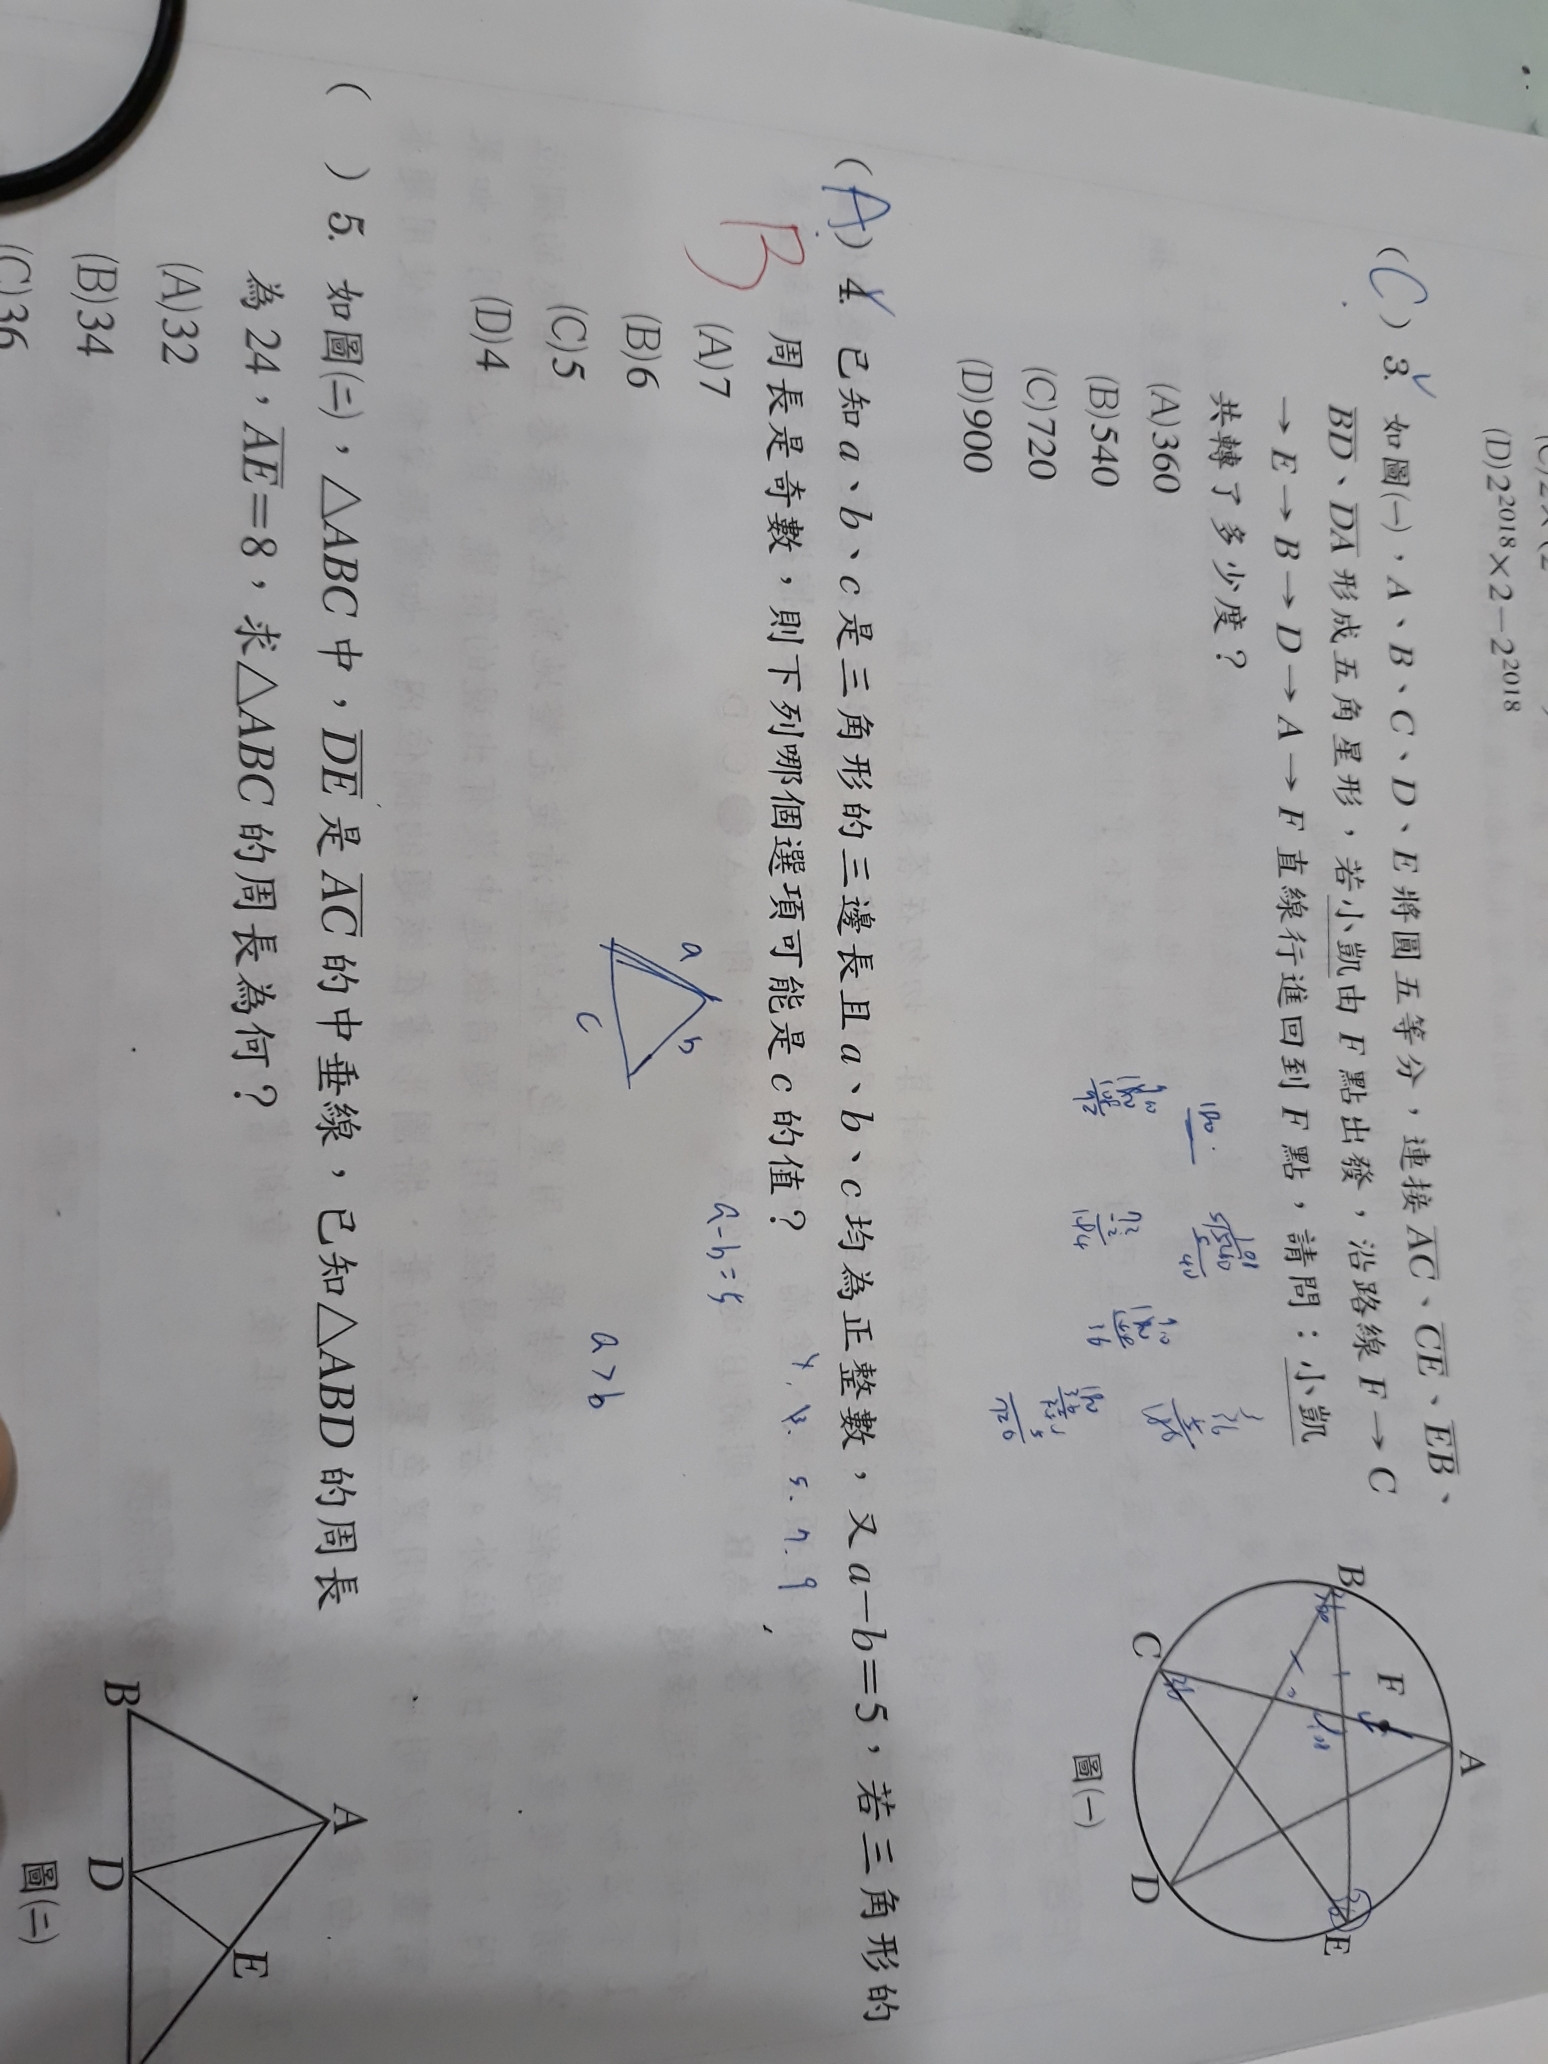 (D)2²⁰¹⁸×2−2²⁰¹⁸
(C) 3. 如圖(一)，A、B、C、D、E 將圓五等分，連接 AC、CE、EB、
BD、DA 形成五角星形，若小凱由 F 點出發，沿路線 F→C
→E→B→D→A→F 直線行進回到 F 點，請問：小凱
共轉了多少度？
(A)360
(B)540
(C)720
(D)900
A
B
F
E
C
D
圖(一)
36
36
180
72
540
108
36
180
720
(A) 4. 已知 a、b、c 是三角形的三邊長且 a、b、c 均為正整數，又 a−b=5，若三角形的
B
周長是奇數，則下列哪個選項可能是 c 的值？
(A)7
(B)6
(C)5
(D)4
a
b
c
a-b=5
a>b
5. 7. 9
( ) 5. 如圖(二)，△ABC 中，DE 是 AC 的中垂線，已知△ABD 的周長
為 24，AE=8，求△ABC 的周長為何？
(A)32
(B)34
(C)36
A
E
B
D
圖(二)